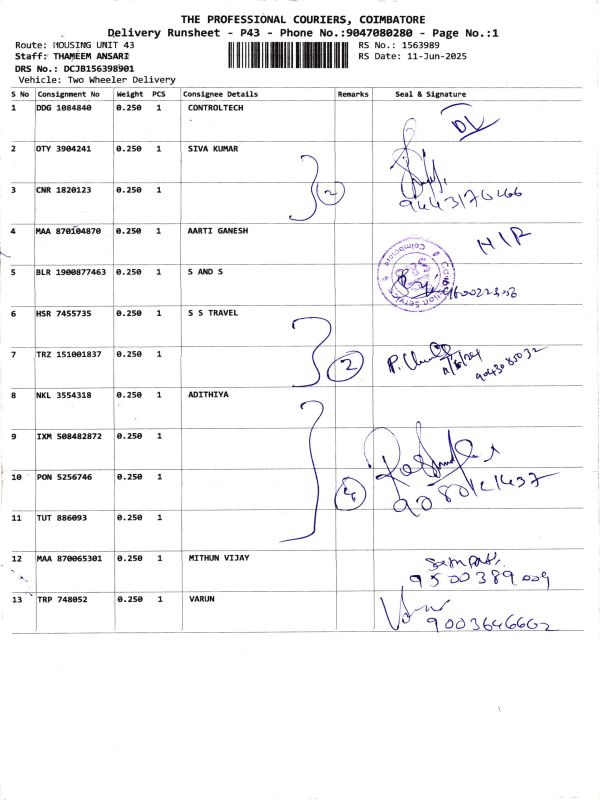 THE PROFESSIONAL COURIERS, COIMBATORE
Delivery Runsheet - P43 - Phone No.:9047080280 - Page No.:1
Route: HOUSING UNIT 43 RS No.: 1563989
Staff: THAMEEM ANSARI RS Date: 11-Jun-2025
DRS No.: DCJB156398901
Vehicle: Two Wheeler Delivery
S No Consignment No Weight PCS Consignee Details Remarks Seal & Signature
1 DDG 1084840 0.250 1 CONTROLTECH DL
2 OTY 3904241 0.250 1 SIVA KUMAR
2
3 CNR 1820123 0.250 1
4 MAA 870104870 0.250 1 AARTI GANESH
Coimbatore
5 BLR 1900877463 0.250 1 S AND S
6 HSR 7455735 0.250 1 S S TRAVEL
7 TRZ 151001837 0.250 1 2
8 NKL 3554318 0.250 1 ADITHIYA
9 IXM 508482872 0.250 1
10 PON 5256746 0.250 1 4
11 TUT 886093 0.250 1
12 MAA 870065301 0.250 1 MITHUN VIJAY
9500389009
13 TRP 748052 0.250 1 VARUN
9003646602